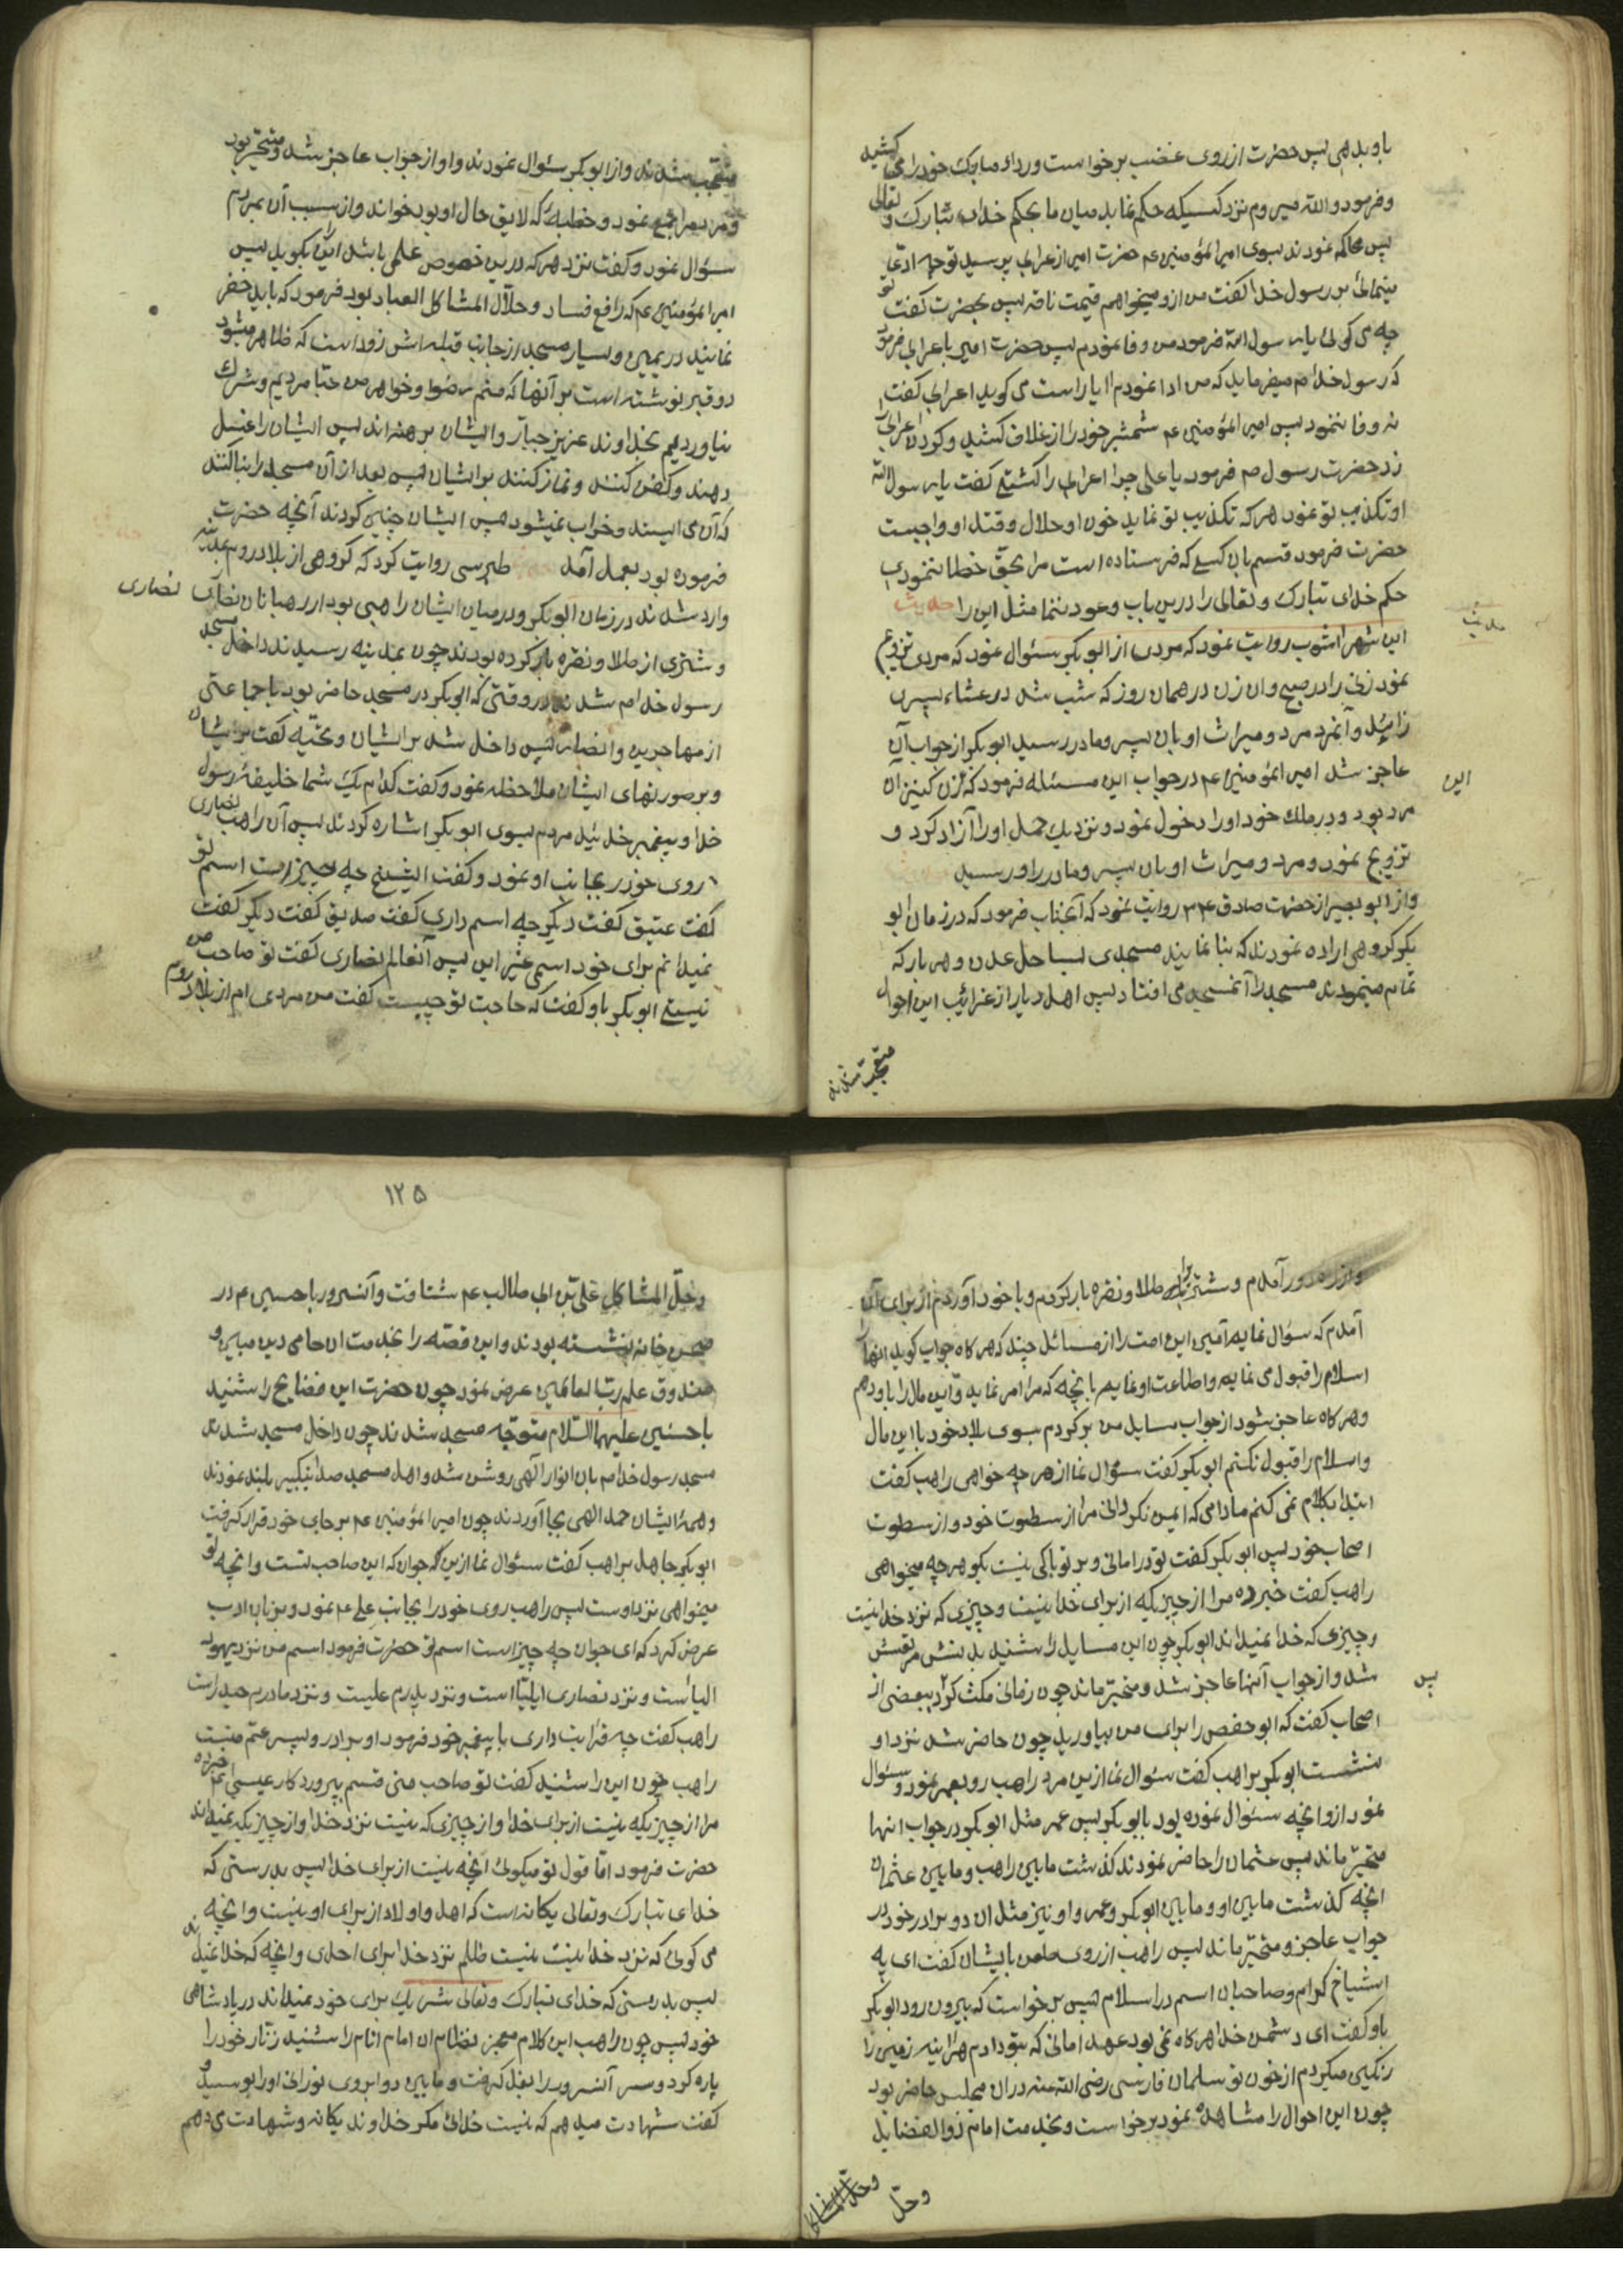 باو بدهی پس حضرت از روی غضب برخواست ورداء مبارک خود را می کشید
وفرمود والله میروم نزد کسیکه حکم نماید میان ما بحکم خدای تبارک و تعالی
پس محاکمه نمودند بسوی امیرالمؤمنین عم حضرت امیر از عرابی پرسید تو چه ادعی
مینمائی بر رسول خدا کفت من ازو میخواهم قیمت ناقه پس بحضرت کفت تو
چه می کوئی یا رسول الله فرمود من وفا نمودم پس حضرت امیر باعرابی فرمود
که رسول خدا م میفرماید که من ادا نمودم ایا راست می کوید اعرابی کفت
نه وفا ننمود پس امیر المؤمنین عم شمشیر خود را از غلاف کشید و کردن اعرابی
زد حضرت رسول ص فرمود یا علی چرا اعرابی را کشتی کفت یا رسول الله
او تکذیب تو نمود هر که تکذیب تو نماید خون او حلال وقتل او واجبست
حضرت فرمود قسم بان کسی که فرستاده است مرا بحق خطا ننمودی
حکم خدای تبارک وتعالی را درین باب وعود ننما مثل این را حدیث
ابن شهر اشوب روایت نمود که مردی از ابو بکر سئوال نمود که مردی تزویج
نمود زنی را در صبح وان زن در همان روز که شب شد در عشاء پسری
زائید وآنمرد مرد ومیراث او بان پسر ومادر رسید ابو بکر از جواب آن
عاجز شد امیر المؤمنین عم در جواب این مسئله فرمود که زن کنیز آن
این
مرد بود و در ملک خود او را دخول نمود ونزدیک حمل او را آزاد کرد و
تزویج نمود ومرد ومیراث او بان پسر ومادر او رسید
واز ابو بصیر از حضرت صادق روایت نمود که آنجناب فرمود که در زمان ابو
بکر کروهی اراده نمودند که بنا نمایند مسجدی بساحل عدن وهر بار که
تمام مینمودند مسجد را آنمسجد می افتاد پس اهل دیار از غرائب این احوال
متعجب شدند
متعجب شدند واز ابو بکر سئوال نمودند واو از جواب عاجز شد ومتحیر بود
ومردم را جمع نمود وخطبه که لایق حال او بود بخواند واز سبب آن مردم
سئوال نمود وکفت نزد هر که درین خصوص علمی باشد بکوید پس
امیر المؤمنین عم که رافع فساد وحلّال المشاکل العباد بود فرمود که باید حفر
نمایند در یمین ویسار مسجد از جانب قبله اش زود است که ظاهر میشود
دو قبر نوشته است بر آنها که منم رضوا وخواهر من حبّا مردیم وشرک
نیاوردیم بخداوند عزیز جبار وایشان برهنه اند پس ایشان را غسل
دهند وکفن کنند ونماز کنند بر ایشان پس بعد از آن مسجد را بنا کنند
که آن می ایستد وخراب نمیشود پس ایشان چنین کردند آنچه حضرت
فرموده بود بعمل آمد طبرسی روایت کرد که کروهی از بلاد روم بمدینه
وارد شدند در زمان ابو بکر ودر میان ایشان راهبی بود از رهبانان نصاری
نصاری
وشتری از طلا ونقره بار کرده بودند چون بمدینه رسیدند داخل مسجد
رسول خدا م شدند در وقتی که ابو بکر در مسجد حاضر بود با جماعتی
از مهاجرین وانصار پس داخل شد بر ایشان وتحیّه کفت بر ایشان
وبر صورتهای ایشان ملاحظه نمود وکفت کدام یک شما خلیفهٔ رسول
خدا وپیغمبر خدائید مردم بسوی ابو بکر اشاره کردند پس آن راهب نصاری
روی خود را بجانب او نمود وکفت ایشیخ چه چیز است اسم تو
کفت عتیق کفت دیکر چه اسم داری کفت صدیق کفت دیکر کفت
نمیدانم برای خود اسمی غیر این پس آنعالم نصاری کفت تو صاحب من
نیستی ابو بکر باو کفت که حاجت تو چیست کفت من مردی ام از بلاد روم
آمدم وشتری را طلا ونقره بار کردم وبا خود آوردم از برای آن
آمدم که سؤال نمایم امین این امت را از مسائل چند که هر کاه جواب کوید انها
اسلام را قبول می نمایم واطاعت او نمایم بانچه که مرا امر نماید واین مال را باو دهم
وهر کاه عاجز شود از جواب مسایل من بر کردم بسوی بلاد خود با این مال
واسلام را قبول نکنم ابو بکر کفت سؤال نما از هر چه خواهی راهب کفت
ابتدا بکلام نمی کنم مادامی که ایمن نکردانی مرا از سطوت خود واز سطوت
اصحاب خود پس ابو بکر کفت تو در امانی وبر تو باکی نیست بکو هر چه میخواهی
راهب کفت خبر ده مرا از چیزیکه از برای خدا نیست وچیزی که نزد خدا نیست
وچیزی که خدا نمیداند ابو بکر چون این مسایل را شنید بدنش مرتعش
شد واز جواب آنها عاجز شد ومتحیّر ماند چون زمانی مکث کرد ببعضی از
پس
اصحاب کفت که ابو حفص را برای من بیاورید چون حاضر شد نزد او
بنشست ابو بکر براهب کفت سئوال نما ازین مرد راهب رو بعمر نمود وسئوال
نمود ازو انچه سئوال نموده بود بابو بکر پس عمر مثل ابو بکر در جواب انها
متحیّر ماند پس عثمان را حاضر نمودند کذشت مابین راهب ومابین عثمان
انچه کذشت مابین او ومابین ابو بکر وعمر واو نیز مثل ان دو برادر خود در
جواب عاجز ومتحیّر ماند پس راهب از روی طعن بایشان کفت ای په
اشیاخ کرام وصاحبان اسم در اسلام پس برخواست که بیرون رود ابو بکر
باو کفت ای دشمن خدا هر کاه نمی بود عهد امانی که بتو دادم هر اینه زمین را
رنکین میکردم از خون تو سلمان فارسی رضی الله عنه در ان مجلس حاضر بود
چون این احوال را مشاهده نمود برخواست وبخدمت امام ذو الفضایل
وحلّ
۱۲۵
وحلّ المشاکل علی بن ابی طالب عم شتافت وآنسرور با حسین عم در
صحن خانه نشسته بودند واین قصّه را بخدمت ان حامی دین مبین و
صندوق علم ربّ العالمین عرض نمود چون حضرت این فضایح را شنید
با حسنین علیهما السّلام متوجّه مسجد شدند چون داخل مسجد شدند
مسجد رسول خدا م بان انوار آلهی روشن شد واهل مسجد صدا بتکبیر بلند نمودند
وهمهٔ ایشان حمد الهی بجا آوردند چون امیر المؤمنین عم بر جای خود قرار کرفت
ابو بکر جاهل براهب کفت سئوال نما ازین که جوان که این صاحب تست وانچه تو
میخواهی نزد اوست پس راهب روی خود را بجانب علی عم نمود وبزبان ادب
عرض کرد که ای جوان چه چیز است اسم تو حضرت فرمود اسم من نزد یهود
الیا است ونزد نصاری ایلیّا است ونزد پدرم علیست ونزد مادرم حیدر است
راهب کفت چه قرابت داری با پیغمبر خود فرمود او برادر وپسر عم منست
راهب چون این را شنید کفت تو صاحب منی قسم بپرورد کار عیسی عم خبر ده
مرا از چیزیکه نیست از برای خدا واز چیزی که نیست نزد خدا واز چیزیکه نمیداند
حضرت فرمود امّا قول تو میکوئی آنچه نیست از برای خدا پس بدرستی که
خدای تبارک وتعالی یکانه است که اهل واولاد از برای او نیست وانچه
می کوئی که نزد خدا نیست نیست ظلم نزد خدا برای احدی وانچه که خدا نمیداند
پس بدرستی که خدای تبارک وتعالی شریک برای خود نمیداند در پادشاهی
خود پس چون راهب این کلام معجز نظام ان امام انام را شنید زنّار خود را
پاره کرد وسر آنسرور را بغل کرفت ومابین دو ابروی نورانی او را بوسید و
کفت شهادت میدهم که نیست خدائی مکر خداوند یکانه وشهادت می دهم